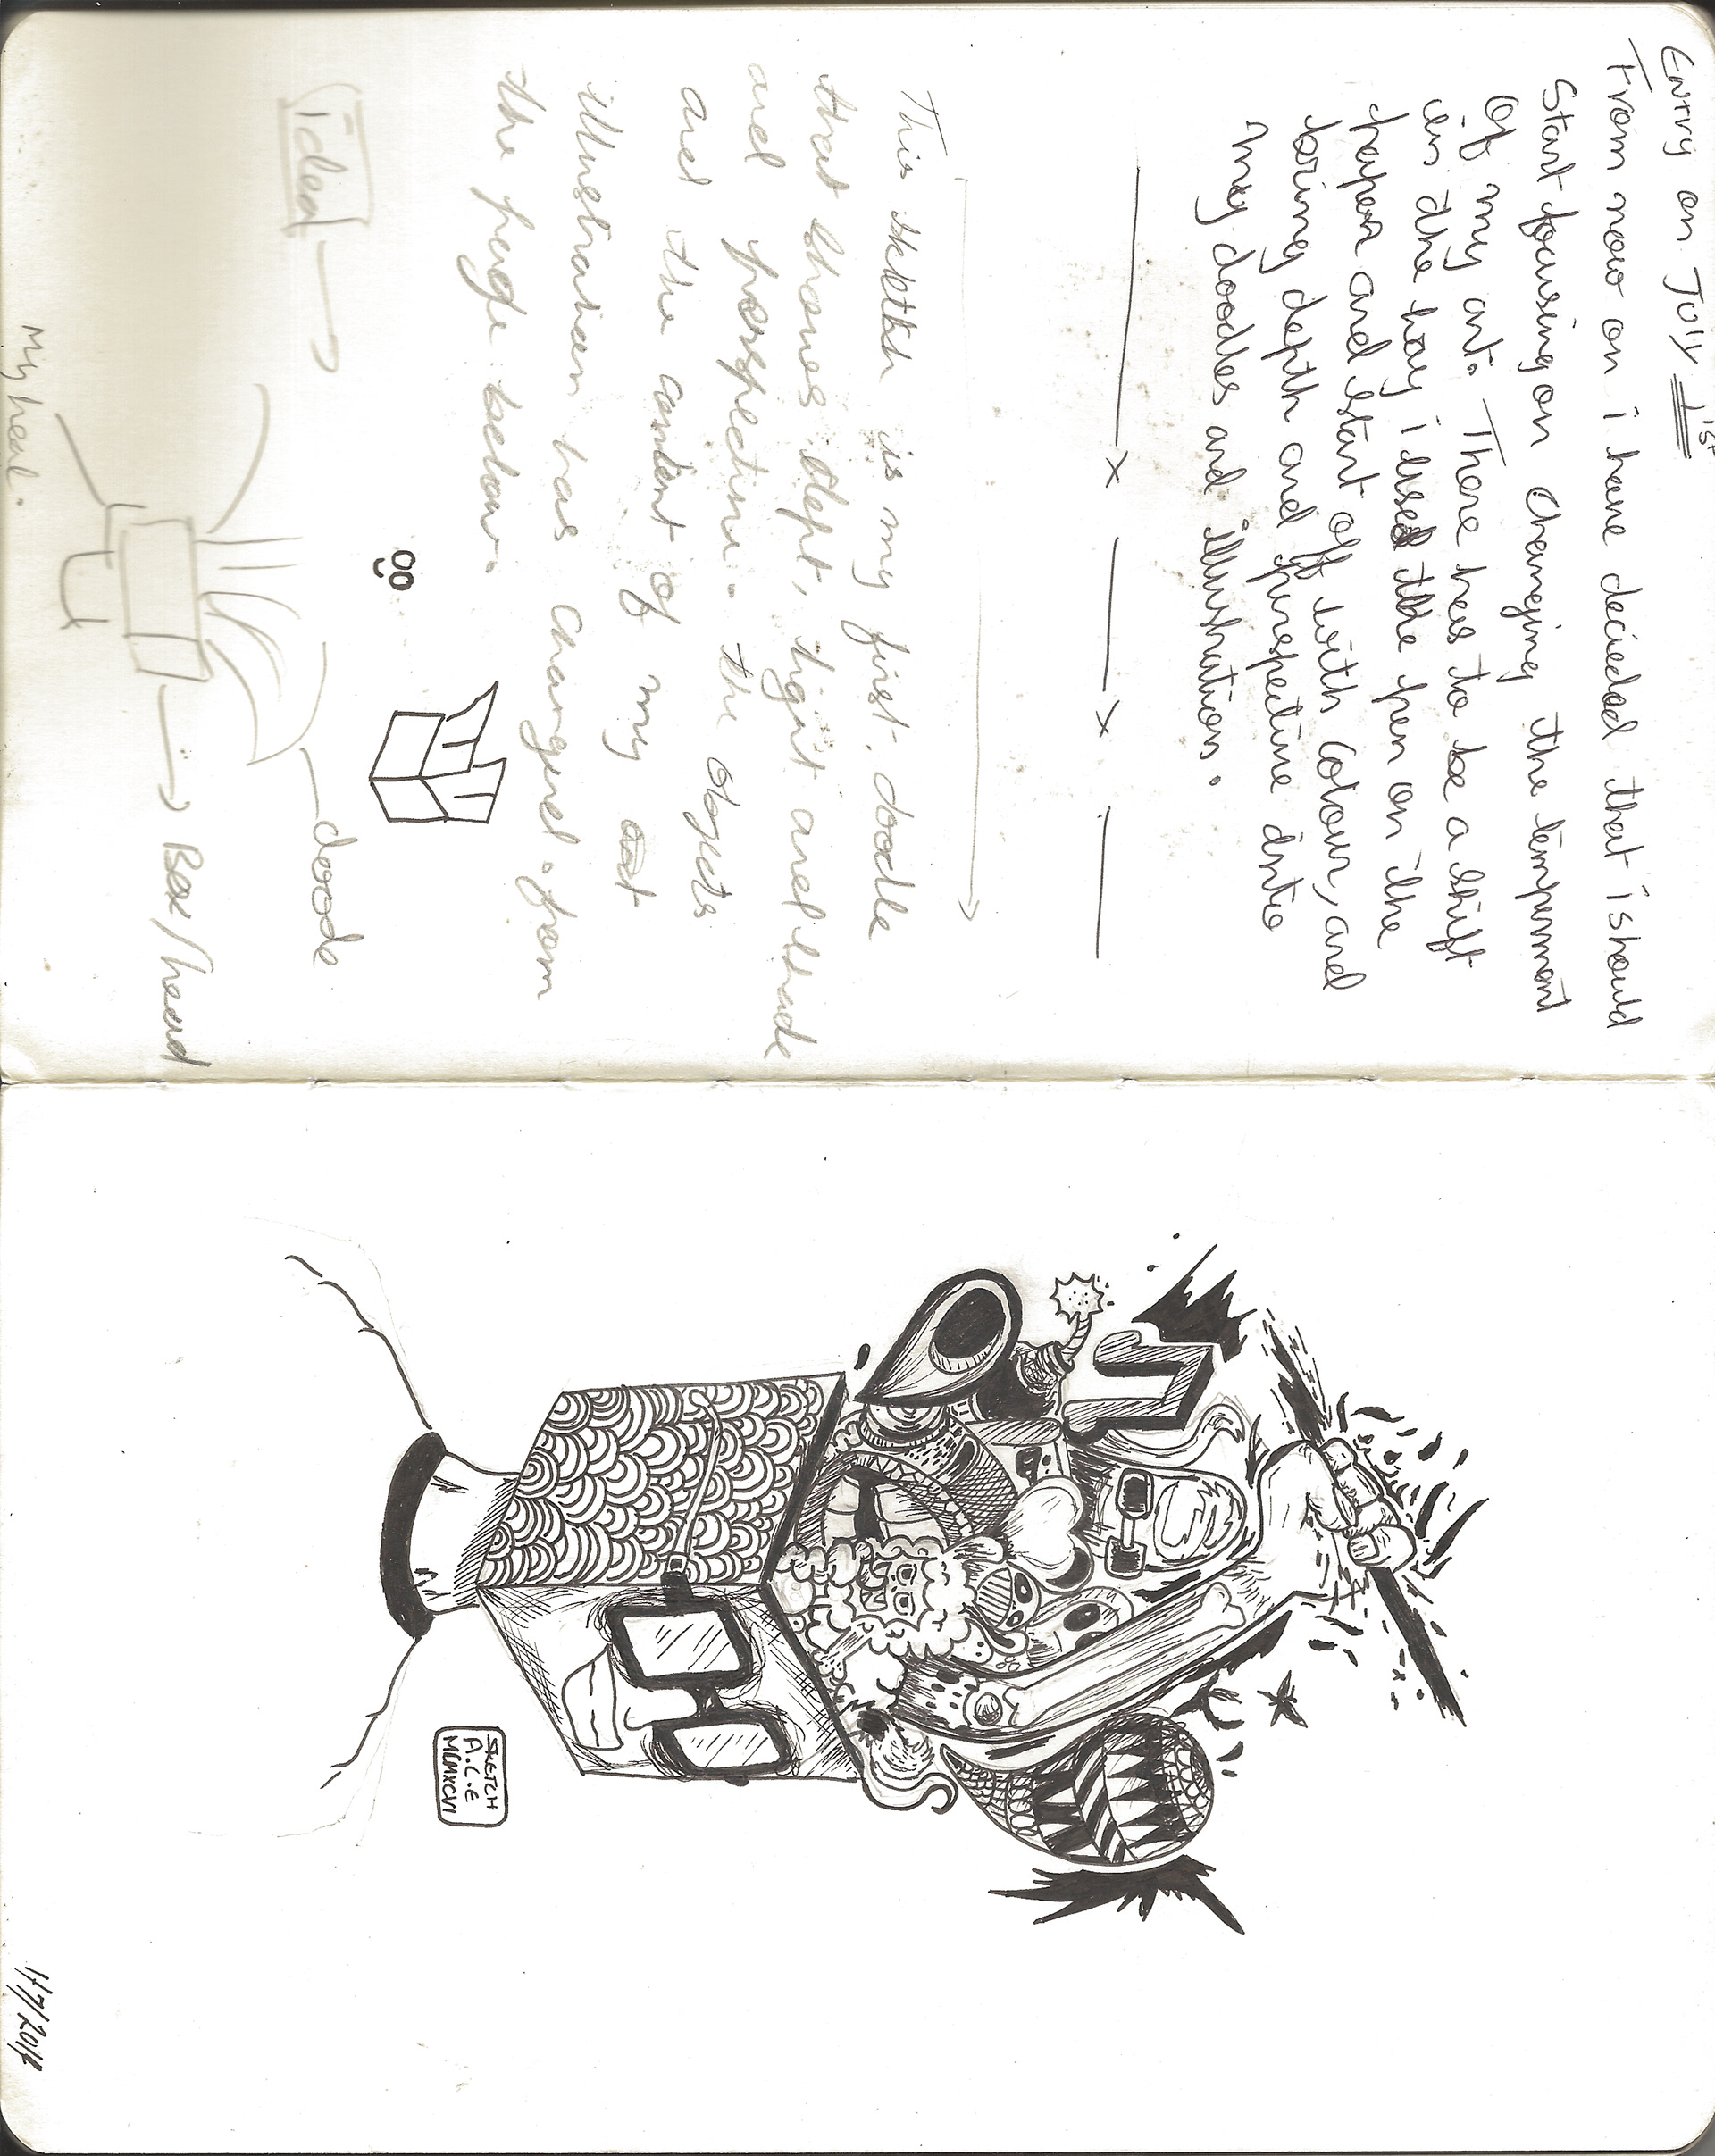 Entry on July 1st
From now on i have decieded that i should
Start focusing on Changing the temperment
Of my art. There has to be a shift
in the way i used the pen on the
paper and start off with colour, and
bring depth and perspective into
my doodles and illustrations.
This sketch is my first. doodle
that shows dept, light and shade
and perspective. the objects
and the content of my art
illustration has changed. from
the page below.
idea
doodle
Box/head
My head.
SKETCH
A.C.E
MCMXCVI
1/7/2014